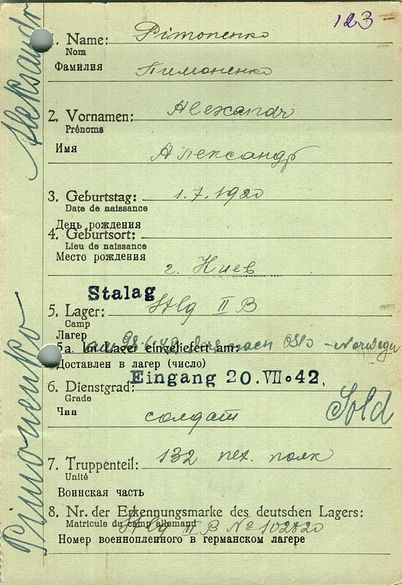 123
1. Name: Pimonenko
Nom
Фамилия Пимоненко
2. Vornamen: Alexandr
Prénoms
Имя Александр
3. Geburtstag: 1.7.1920
Date de naissance
День рождения
4. Geburtsort:
Lieu de naissance
Место рождения г. Киев
Stalag
5. Lager: Stlg II B
Camp
Лагер
5a. Im Lager eingeliefert am: nach Oslo - Norwegen
Доставлен в лагер (число)
Eingang 20.VII.42.
6. Dienstgrad: Sold
Grade
Чин солдат
7. Truppenteil: 132 пех. полк
Unité
Воинская часть
8. Nr. der Erkennungsmarke des deutschen Lagers:
Matricule du camp allemand Stlg II B № 102820
Номер военнопленного в германском лагере
Pimonenko Aleksandr